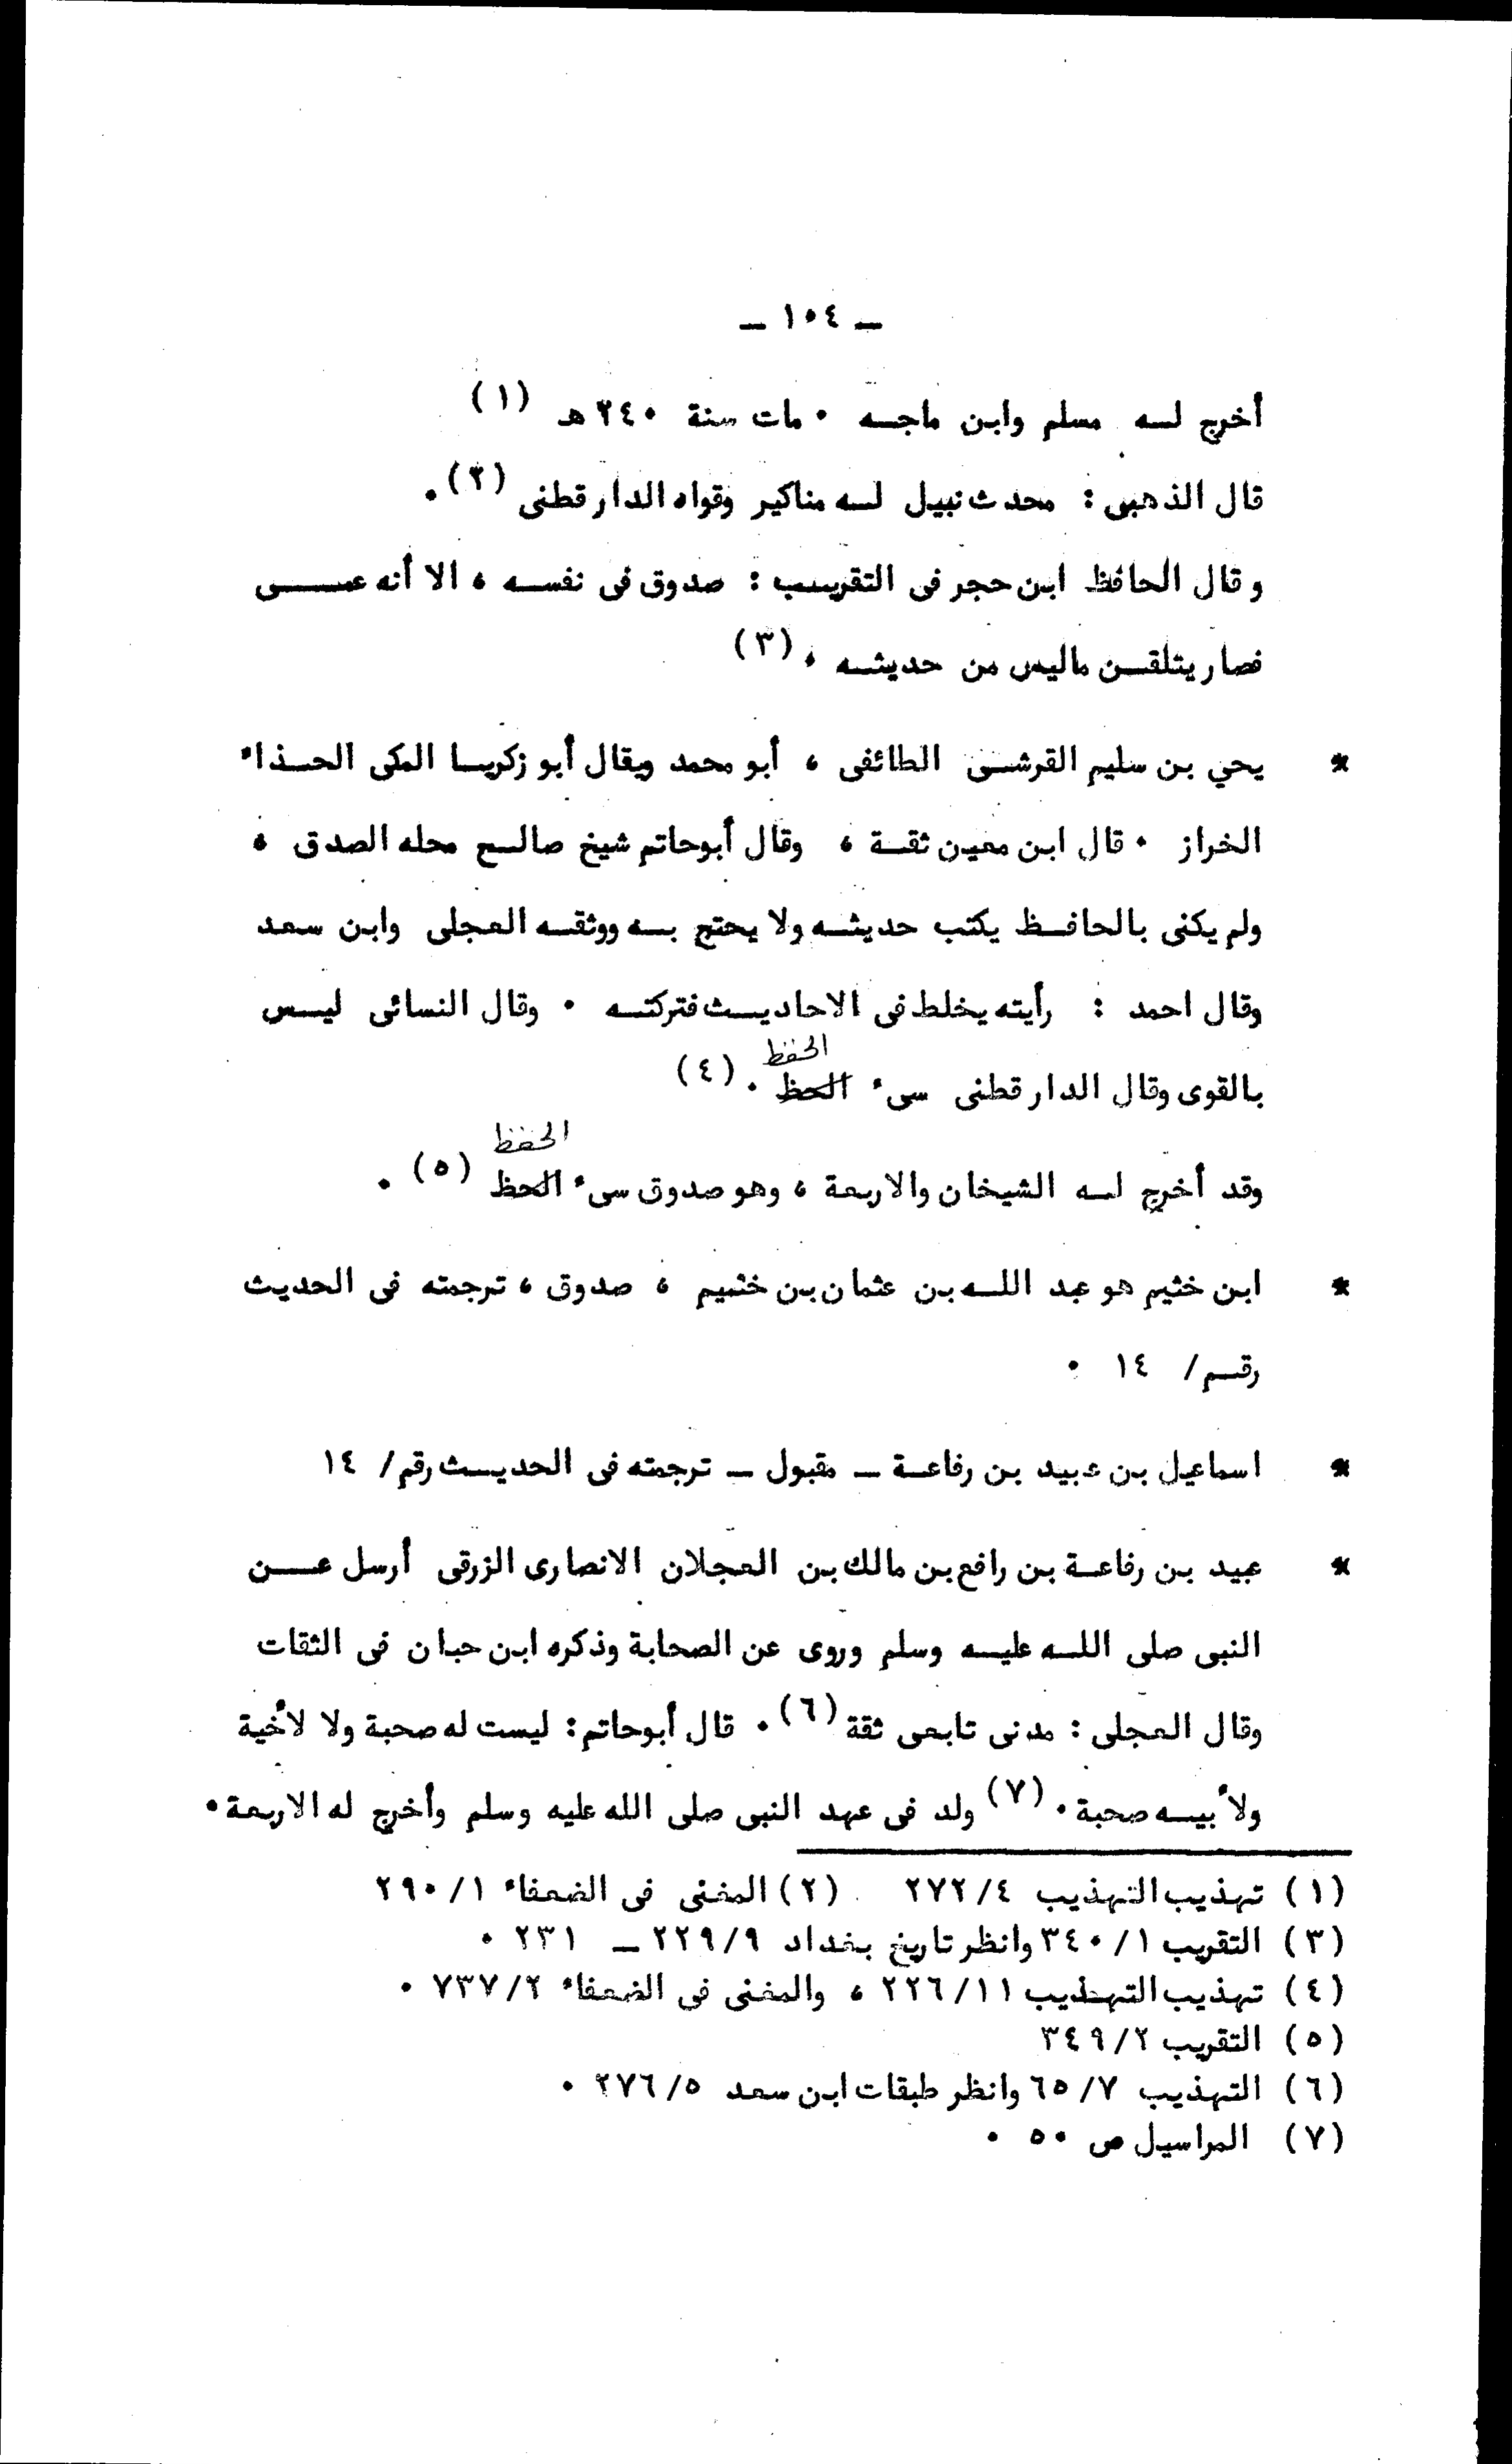 ـ ١٠٤ ـ
أخرج له مسلم وابن ماجه ٠ مات سنة ٢٤٠هـ (١)
قال الذهبى : محدث نبيل له مناكير وقواه الدارقطنى (٢) ٠
وقال الحافظ ابن حجر فى التقريب : صدوق فى نفسه ، الا أنه عمى
فصار يتلقن ماليس من حديثه ، (٣)
* يحي بن سليم القرشى الطائفى ، أبو محمد ويقال أبو زكريا المكى الحذاء
الخراز ٠ قال ابن معين ثقة ، وقال أبوحاتم شيخ صالح محله الصدق ،
ولم يكنى بالحافظ يكتب حديثه ولا يحتج به ووثقه العجلى وابن سعد
وقال احمد : رأيته يخلط فى الاحاديث فتركته ٠ وقال النسائى ليس
الحفظ
بالقوى وقال الدارقطنى سىء الحظ ٠ (٤)
الحفظ
وقد أخرج له الشيخان والاربعة ، وهو صدوق سىء الحظ (٥) ٠
* ابن خثيم هو عبد الله بن عثمان بن خثيم ، صدوق ، ترجمته فى الحديث
رقم / ١٤ ٠
* اسماعيل بن عبيد بن رفاعة ـ مقبول ـ ترجمته فى الحديث رقم / ١٤
* عبيد بن رفاعة بن رافع بن مالك بن العجلان الانصارى الزرقى أرسل عن
النبى صلى الله عليه وسلم وروى عن الصحابة وذكره ابن حبان فى الثقات
وقال العجلى : مدنى تابعى ثقة (٦) ٠ قال أبوحاتم : ليست له صحبة ولا لأخية
ولأبيه صحبة ٠ (٧) ولد فى عهد النبى صلى الله عليه وسلم وأخرج له الاربعة ٠
(١) تهذيب التهذيب ٢٧٢/٤ (٢) المغنى فى الضعفاء ٢٩٠/١
(٣) التقريب ٣٤٠/١ وانظر تاريخ بغداد ٢٢٩/٩ ـ ٢٣١ ٠
(٤) تهذيب التهطيب ٢٢٦/١١ ، والمغنى فى الضعفاء ٧٣٧/٢ ٠
(٥) التقريب ٣٤٩/٢
(٦) التهذيب ٦٥/٧ وانظر طبقات ابن سعد ٢٧٦/٥ ٠
(٧) المراسيل ص ٥٠ ٠